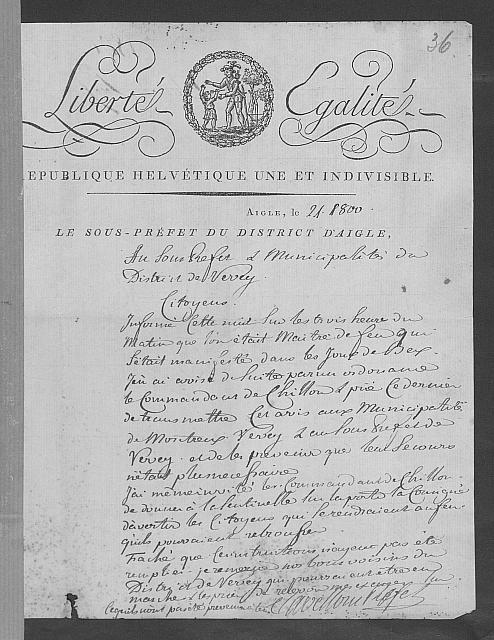 36
Liberté Egalité
REPUBLIQUE HELVÉTIQUE UNE ET INDIVISIBLE.
AIGLE, le 21. 1800.
LE SOUS-PRÉFET DU DISTRICT D'AIGLE,
Au Sous Prefet & Municipalités du
District de Vevey.
Citoyens.
Informé Cette nuit sur les trois heure du
Matin que l'on était Maitre du feu qui
S'était manifesté dans les Joux de Bex.
J'en ai avisé de Suite par un ordonnance
le Commandant de Chillon & prié Ce dernier
de transmettre Cet avis aux Municipalité
de Montreux, Vevey & au Sous Prefet de
Vevey. et de les prevenir que leur Secours
n'était plus necessaire
J'ai meme invité les Commandant de Chillon
de donner à la Sentinelle sur la porte la Consigne
d'avertir les Citoyens qui se rendraient au feu
qu'ils pouvaient rebrousser
Faché que Ces instructions n'ayent pas été
remplies je remercie nos bons voisins du
District de Vevey qui peuvent etre en
marche & les prie de